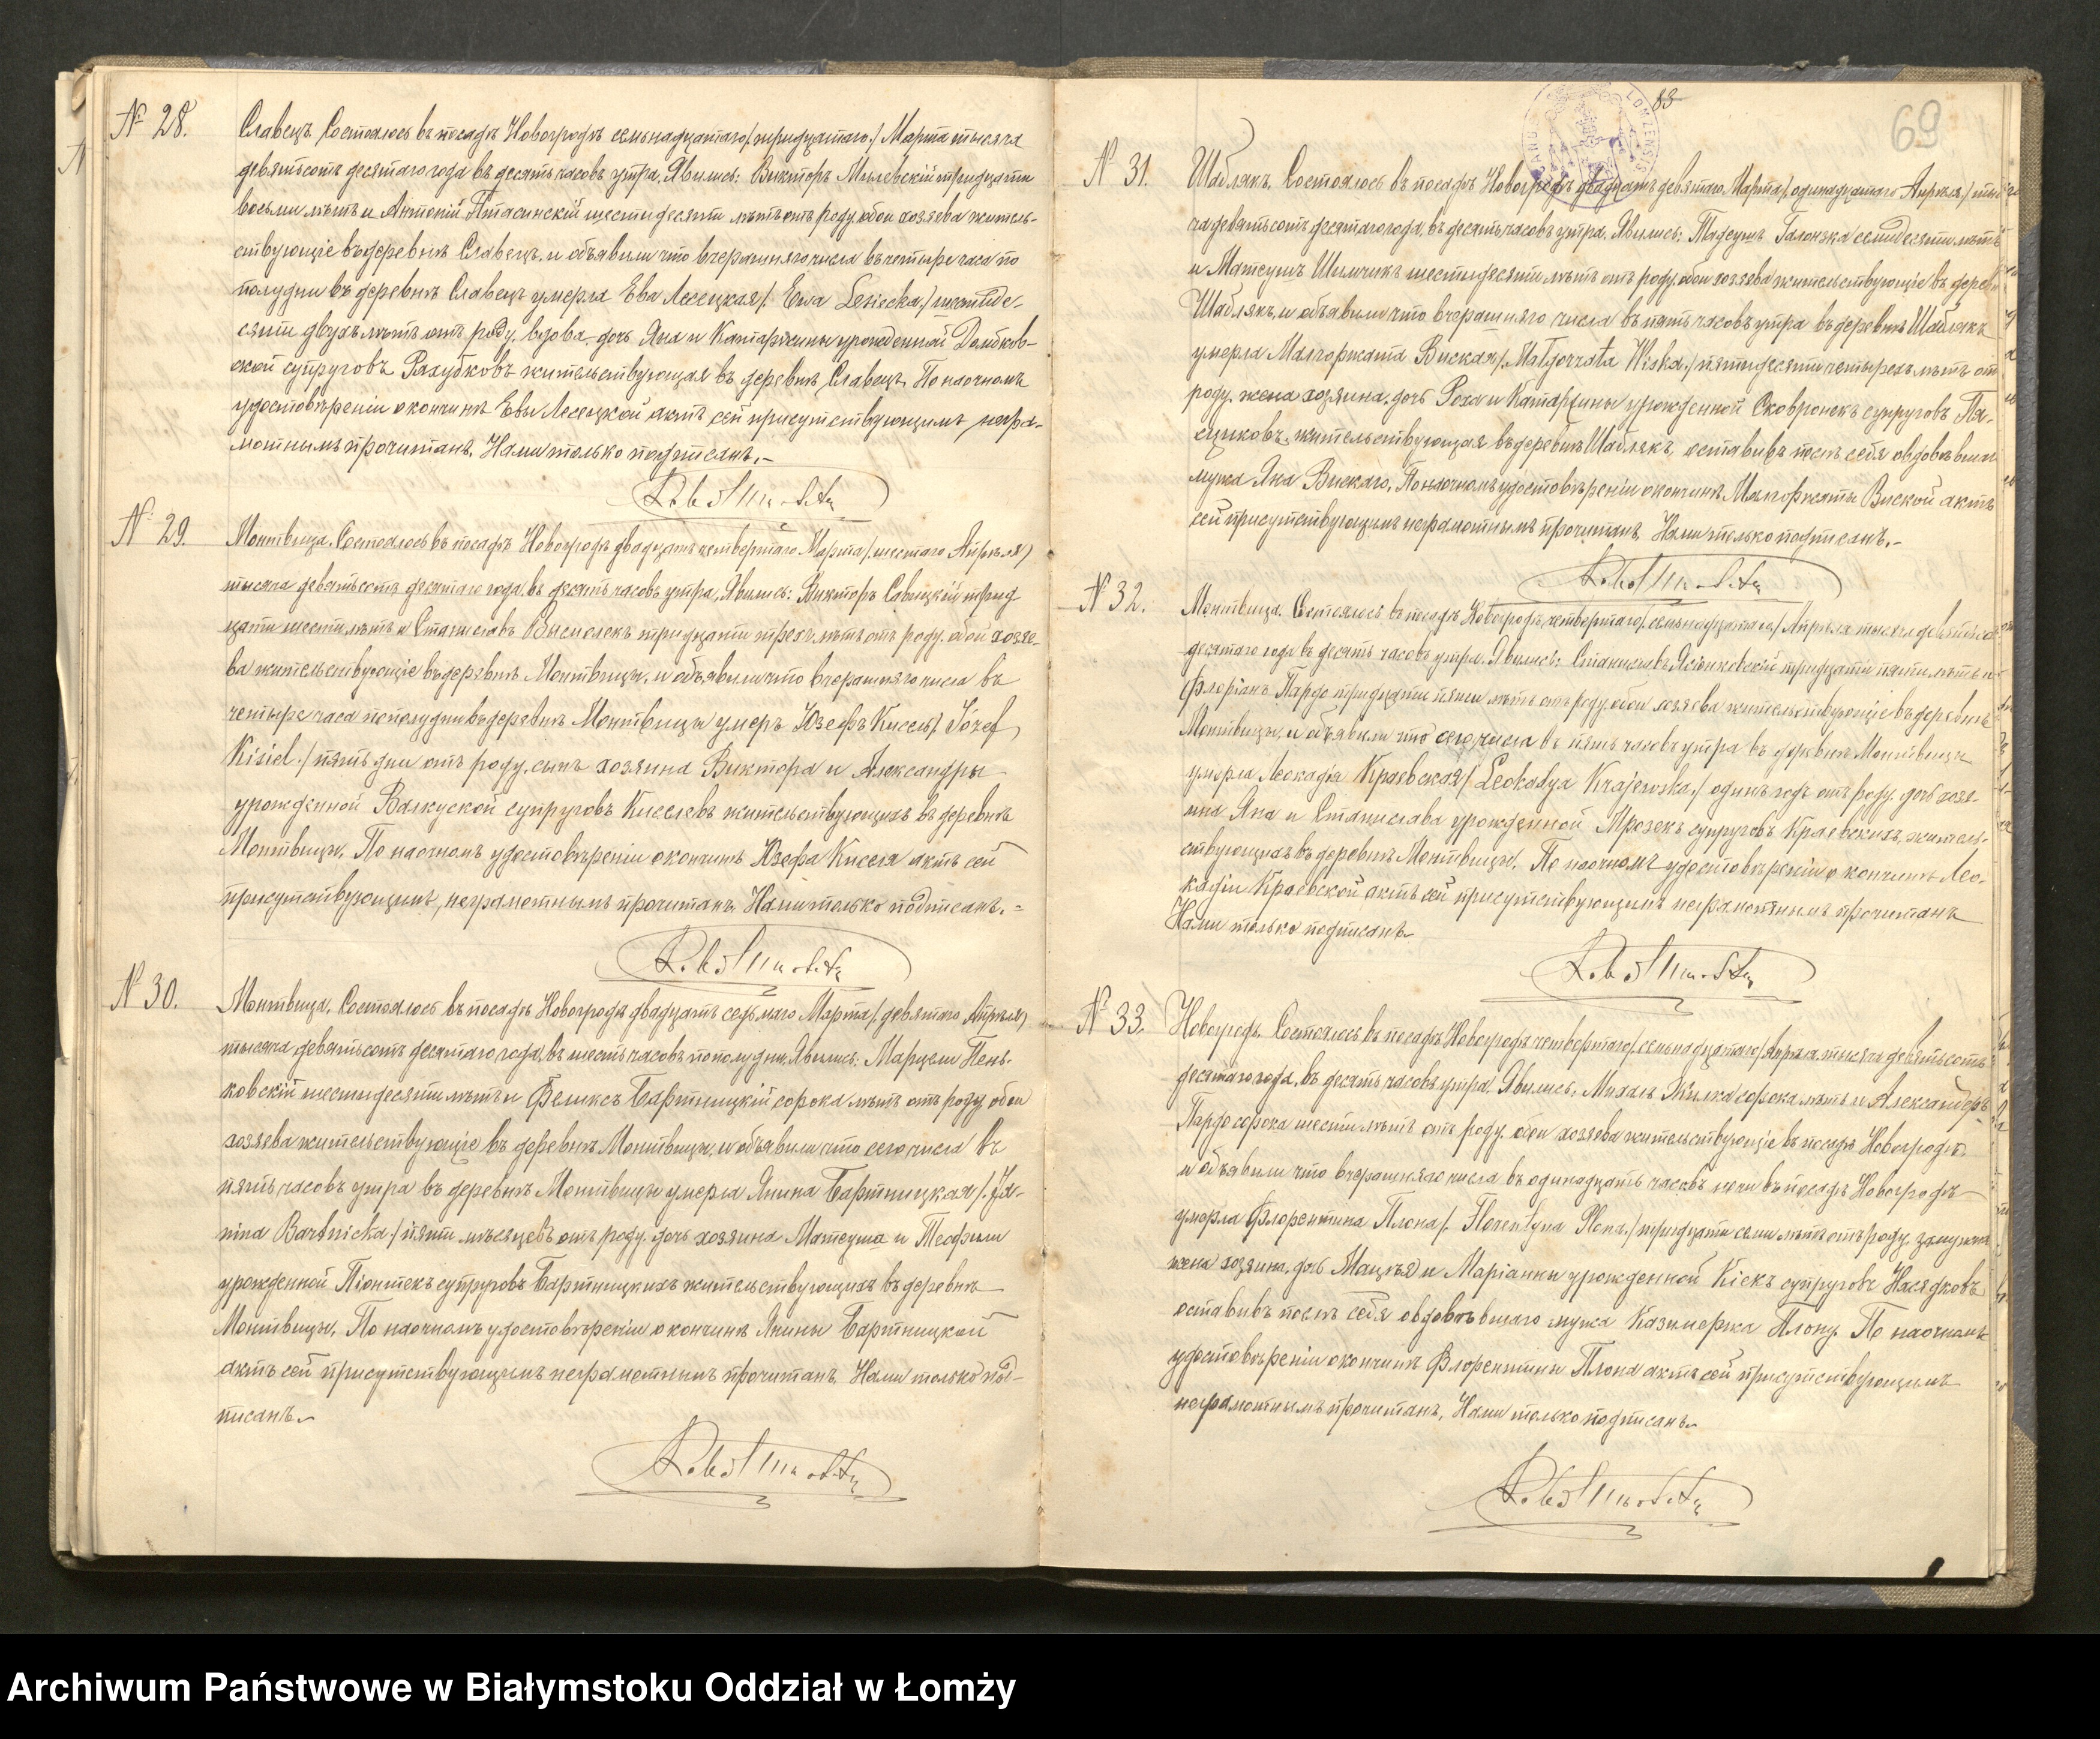 № 28.
Славецъ. Состоялось въ посадѣ Новогродѣ семьнадцатаго /:тридцатаго:/ Марта тысяча
девятьсотъ десятаго года въ десять часовъ утра. Явились: Викторъ Милевскій тридцати
восьми лѣтъ и Антоній Птасинскій шестидесяти лѣтъ отъ роду, обои хозяева житель-
ствующіе въ деревнѣ Славецъ, и объявили что вчерашняго числа въ четыре часа по
полудни въ деревнѣ Славецъ умерла Ева Лесецкая /: Ewa Lesiecka:/ шестиде-
сяти двухъ лѣтъ отъ роду, вдова, дочь Яна и Катаржины урожденной Домбков-
ской супруговъ жительствующая въ деревнѣ Славецъ. По наочномъ
удостовѣреніи о кончинѣ Евы Лесецкой актъ сей присутствующимъ негра-
мотнымъ прочитанъ, Нами только подписанъ.-
№ 29.
Монтвица. Состоялось въ посадѣ Новогродѣ двадцать четвертаго Марта /:шестаго Апрѣля:/
тысяча девятьсотъ десятаго года, въ десять часовъ утра, Явились: Викторъ Савицкій трид
цати шести лѣтъ и Станиславъ тридцати трехъ лѣтъ отъ роду, обои хозяе-
ва жительствующіе въ деревнѣ Монтвицы, и объявили что вчерашняго числа въ
четыре часа пополудни въ деревнѣ Монтвицы умеръ Юзефъ Кисель /: Józef
Kisiel:/ пять дни отъ роду, сынъ хозяина Виктора и Александры
урожденной супруговъ Киселевъ жительствующихъ въ деревнѣ
Монтвицы. По наочномъ удостовѣреніи о кончинѣ Юзефа Киселя актъ сей
присутствующимъ, неграмотнымъ прочитанъ, Нами только подписанъ.=
№ 30.
Монтвица. Состоялось въ посадѣ Новогродѣ двадцать седьмаго Марта /:девятаго Апрѣля:/
тысяча девятьсотъ десятаго года, въ шесть часовъ пополудни. Явились: Марцели Пень-
ковскій шестидесяти лѣтъ и Феликсъ Бартницкій сорока лѣтъ отъ роду обои
хозяева жительствующіе въ деревнѣ Монтвицы, и объявили что сего числа въ
пять часовъ утра въ деревнѣ Монтвицы умерла Янина Бартницкая /: Ja-
nina Bartnicka:/ пяти мѣсяцевъ отъ роду, дочь хозяина Матеуша и Теофили
урожденной Піонтекъ супруговъ Бартницкихъ жительствующихъ въ деревнѣ
Монтвицы. По наочномъ удостовѣреніи о кончинѣ Янины Бартницкой
актъ сей присутствующимъ неграмотнымъ прочитанъ, Нами только под-
писанъ.
83
69
№ 31.
Шаблякъ. Состоялось въ посадѣ Новогродѣ двадцать девятаго Марта /:одинадцатаго Апрѣля:/ тыся
ча девятьсотъ десятаго года, въ десять часовъ утра. Явились: Тадеушъ Галонзка семидесяти лѣтъ
и Матеушъ шестидесяти лѣтъ отъ роду, обои хозяева жительствующіе въ деревнѣ
Шаблякъ, и объявили что вчерашняго числа въ пять часовъ утра въ деревнѣ Шаблякъ
умерла Малгоржата Виская /: Małgorzata Wiska:/ пятидесяти четырехъ лѣтъ отъ
роду, жена хозяина, дочь Роха и Катаржины урожденной Сковронекъ супруговъ Пя-
сциковъ, жительствующая въ деревнѣ Шаблякъ, оставивъ послѣ себя овдовѣвшаго
мужа Яна Вискаго. По наочномъ удостовѣреніи о кончинѣ Малгоржаты Виской актъ
сей присутствующимъ неграмотнымъ прочитанъ, Нами только подписанъ.-
№ 32.
Монтвица. Состоялось въ посадѣ Новогродѣ четвертаго /:семьнадцатаго:/ Апрѣля тысяча девятьсотъ
десятаго года въ десять часовъ утра. Явились: Станиславъ тридцати пяти лѣтъ и
Флоріанъ Пардо тридцати пяти лѣтъ отъ роду, обои хозяева жительствующіе въ деревнѣ
Монтвицы, и объявили что сего числа въ пять часовъ утра въ деревнѣ Монтвицы
умерла Леокадія Краевская /: Leokadya Krajewska:/ одинъ годъ отъ роду, дочь хозя-
ина Яна и Станислава урожденной Мрозекъ супруговъ Краевскихъ, житель-
ствующихъ въ деревнѣ Монтвицы. По наочномъ удостовѣреніи о кончинѣ Лео-
кадіи Краевской актъ сей присутствующимъ неграмотнымъ прочитанъ
Нами только подписанъ
№ 33.
Новогродъ. Состоялось въ посадѣ Новогродѣ четвертаго /:семьнадцатаго:/ Апрѣля тысяча девятьсотъ
десятаго года, въ десять часовъ утра. Явились: Михалъ Жилка сорока лѣтъ и Александръ
Пардо сорока шести лѣтъ отъ роду, обои хозяева жительствующіе въ посадѣ Новогродѣ
и объявили что вчерашняго числа въ одинадцать часовъ ночи въ посадѣ Новогродѣ
умерла Флорентина Плона /: Florentyna Plona:/ тридцати семи лѣтъ отъ роду, замужняя
жена хозяина, дочь Мацѣя и Маріанны урожденной Кіекъ супруговъ Насядковъ
оставивъ послѣ себя овдовѣвшаго мужа Казимержа Плону. По наочномъ
удостовѣреніи о кончинѣ Флорентины Плона актъ сей присутствующимъ
неграмотнымъ прочитанъ, Нами только подписанъ
Archiwum Państwowe w Białymstoku Oddział w Łomży